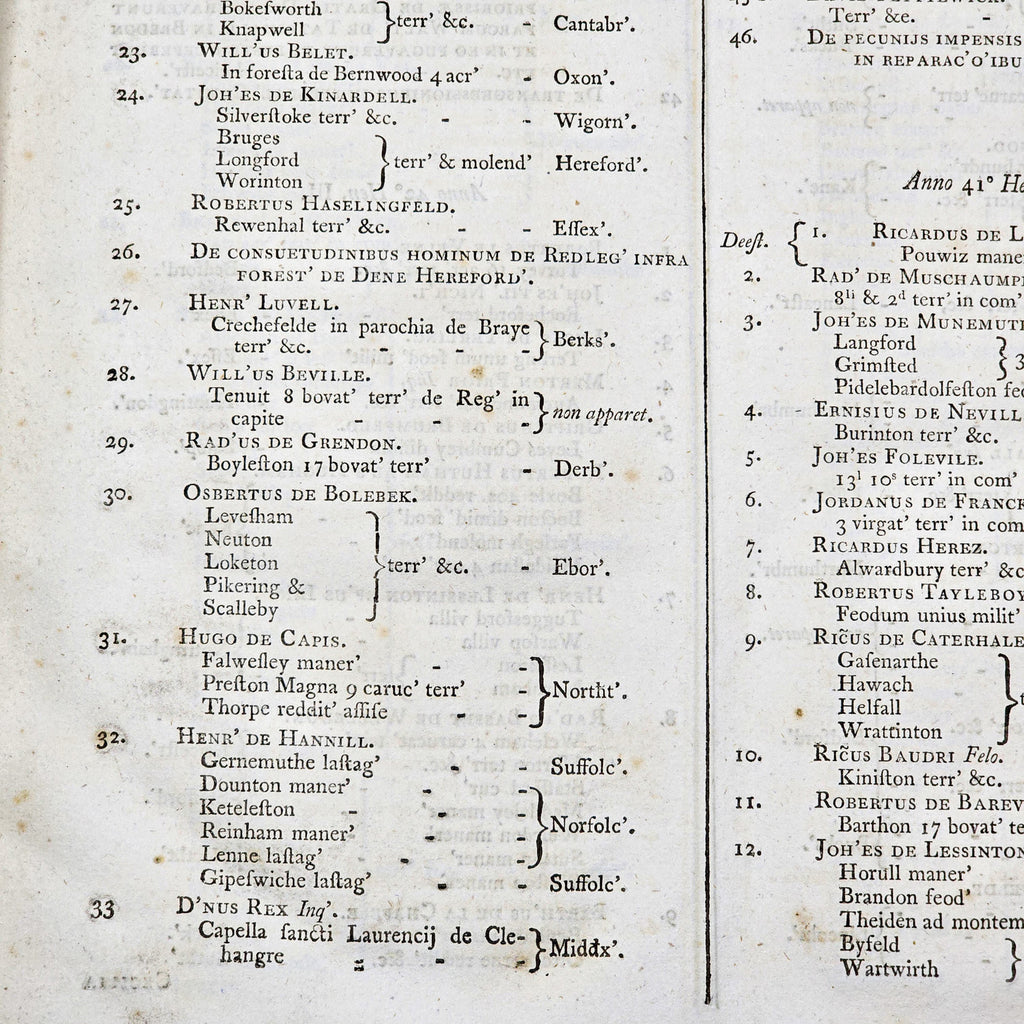 Bokeſworth
Knapwell } terr' &c. - Cantabr'.
23. WILL'US BELET.
In foreſta de Bernwood 4 acr' - Oxon'.
24. JOH'ES DE KINARDELL.
Silverſtoke terr' &c. - - Wigorn'.
Bruges
Longford } terr' & molend' Hereford'.
Worinton
25. ROBERTUS HASELINGFELD.
Rewenhal terr' &c. - - Eſſex'.
26. DE CONSUETUDINIBUS HOMINUM DE REDLEG' INFRA
FOREST' DE DENE HEREFORD'.
27. HENR' LUVELL.
Crechefelde in parochia de Braye
terr' &c. - - } Berks'.
28. WILL'US BEVILLE.
Tenuit 8 bovat' terr' de Reg' in
capite - - } non apparet.
29. RAD'US DE GRENDON.
Boyleſton 17 bovat' terr' - Derb'.
30. OSBERTUS DE BOLEBEK.
Leveſham
Neuton
Loketon } terr' &c. - Ebor'.
Pikering &
Scalleby
31. HUGO DE CAPIS.
Falweſley maner' - -
Preſton Magna 9 caruc' terr' - } Northt'.
Thorpe reddit' aſſiſe -
32. HENR' DE HANNILL.
Gernemuthe laſtag' - - Suffolc'.
Dounton maner' - -
Keteleſton - -
Reinham maner' - - } Norfolc'.
Lenne laſtag' - -
Gipeſwiche laſtag' - - Suffolc'.
33 D'NUS REX Inq'.
Capella ſancti Laurencij de Cle-
hangre - - - } Middx'.
Terr' &c. -
46. DE PECUNIJS IMPENSIS
IN REPARAC'O'IBU
Anno 41º He
Deeſt. { 1. RICARDUS DE L
Pouwiz mane
2. RAD' DE MUSCHAUMP
8li & 2d terr' in com'
3. JOH'ES DE MUNEMUT
Langford
Grimſted } 3
Pidelebardolfeſton fe
4. ERNISIUS DE NEVILL
Burinton terr' &c.
5. JOH'ES FOLEVILE.
13l 10s terr' in com'
6. JORDANUS DE FRANCK
3 virgat' terr' in com
7. RICARDUS HEREZ.
Alwardbury terr' &c
8. ROBERTUS TAYLEBOY
Feodum unius milit'
9. RIC̃US DE CATERHALE
Gaſenarthe
Hawach
Helfall } t
Wrattinton
10. RIC̃US BAUDRI Felo.
Kiniſton terr' &c.
11. ROBERTUS DE BAREV
Barthon 17 bovat' te
12. JOH'ES DE LESSINTON
Horull maner'
Brandon feod'
Theiden ad montem
Byfeld
Wartwirth }